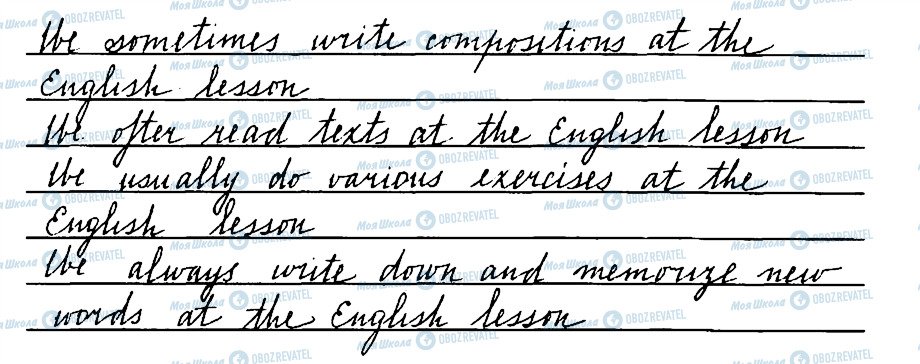 We sometimes write compositions at the
English lesson
We ofter read texts at the English lesson
We usually do various exercises at the
English lesson
We always write down and memorize new
words at the English lesson